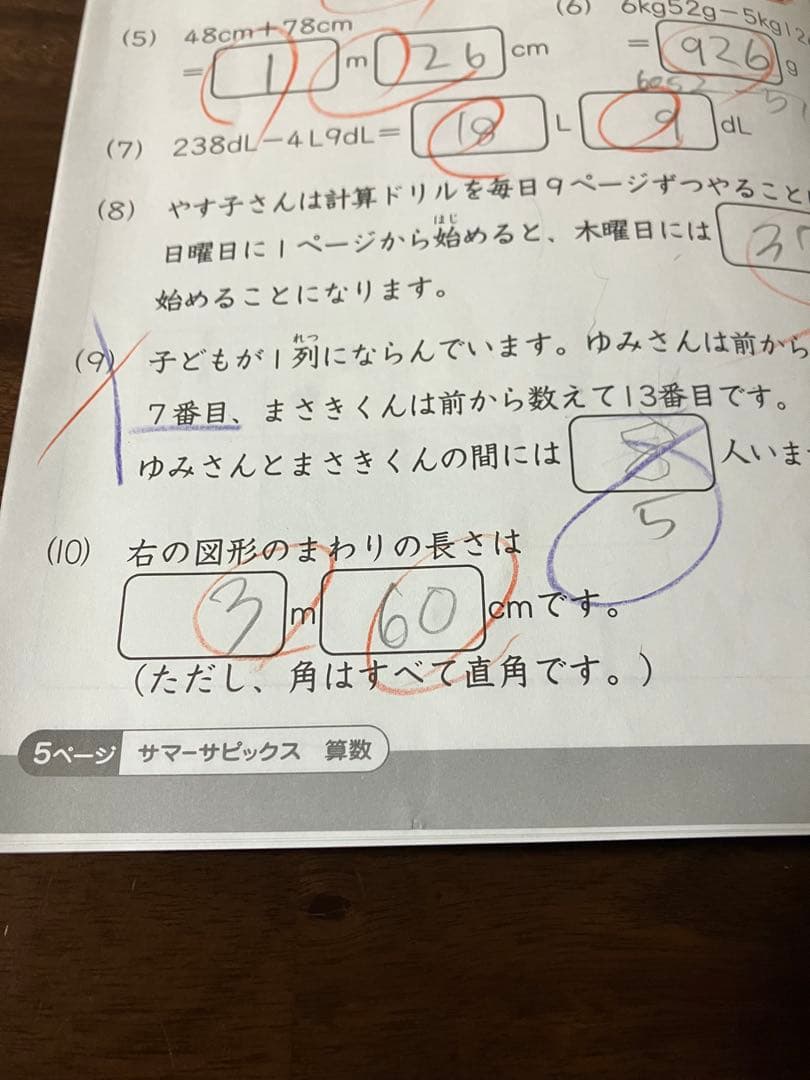 (5) 48cm+78cm
= 1 m 26 cm
(6) 6kg52g-5kg12
= 926 g
6052
(7) 238dL-4L9dL= 18 L 9 dL
(8) やす子さんは計算ドリルを毎日9ページずつやること
日曜日に1ページから始めると、木曜日には
はじ
始めることになります。
(9) 子どもが1列にならんでいます。ゆみさんは前から
れつ
7番目、まさきくんは前から数えて13番目です。
ゆみさんとまさきくんの間には 人いま
5
(10) 右の図形のまわりの長さは
3 m 60 cmです。
(ただし、角はすべて直角です。)
5ページ サマーサピックス 算数